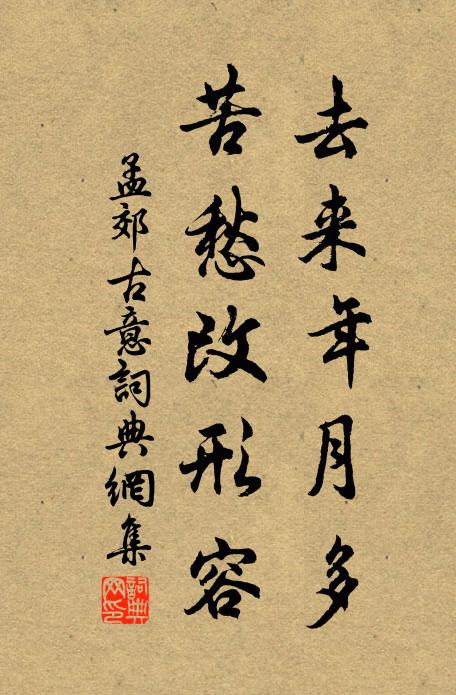 去来年月多
苦愁改形容
孟郊古意詞典網集
詞典
网印